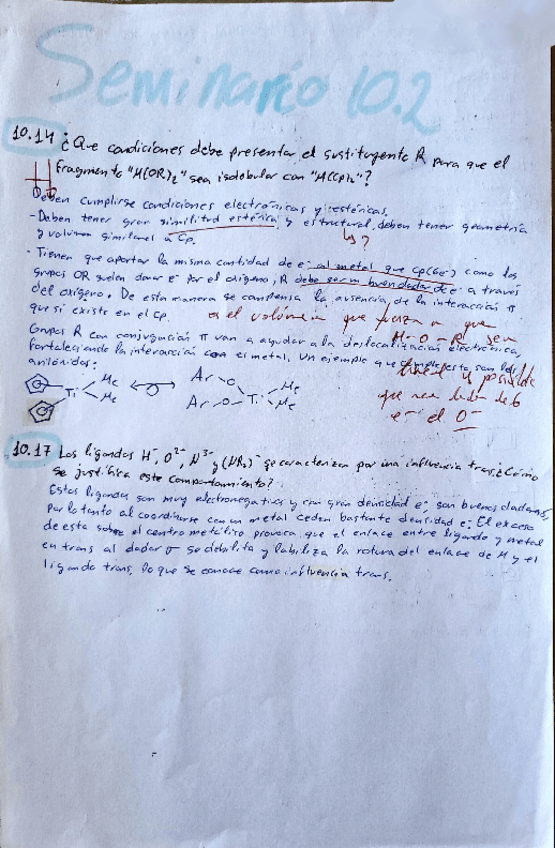 Seminario 10.2
10.14 ¿Que condiciones debe presentar el sustituyente R para que el
fragmento "M(OR)₂" sea isolobular con "M(Cp)₂"?
Deben cumplirse condiciones electrónicas y estéricas.
- Deben tener gran similitud estérica y estructural, deben tener geometría
y volumen similar al Cp.
↳ ?
- Tienen que aportar la misma cantidad de e⁻ al metal que Cp(6e⁻) como los
grupos OR suelen donar e⁻ por el oxígeno, R debe ser un buen dador de e⁻ a través
del oxígeno. De esta manera se compensa la ausencia de la interacción π
que si existe en el Cp.
es el volumen que fuerza a que
M-O-R sea
lineal y posible
que sea dador de 6
e⁻ el O⁻
Grupos R con conjugación π van a ayudar a la deslocalización electrónica,
fortaleciendo la interacción con el metal. Un ejemplo que cumple esto son los
Ti Me Me Ar O Ar O Ti Me Me
10.17 Los ligandos H⁻, O²⁻, N³⁻ y (NR₂)⁻ se caracterizan por una influencia trans ¿Cómo
se justifica este comportamiento?
Estos ligandos son muy electronegativos y con gran densidad e⁻, son buenos dadores,
por lo tanto al coordinarse con un metal ceden bastante densidad e⁻. El exceso
de esta sobre el centro metálico provoca que el enlace entre ligando y metal
en trans al dador σ se debilita y labiliza la rotura del enlace de M y el
ligando trans, lo que se conoce como influencia trans.